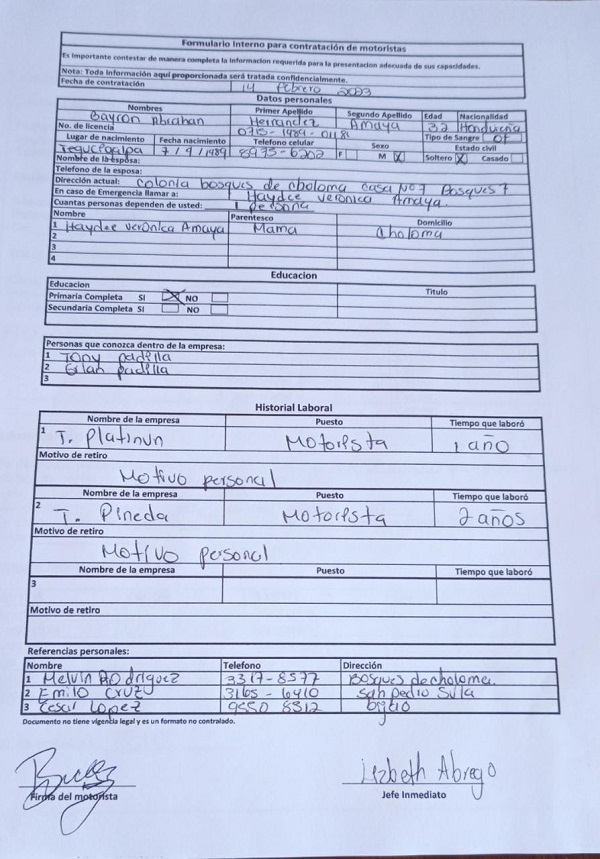 Formulario Interno para contratación de motoristas
Es importante contestar de manera completa la informacion requerida para la presentacion adecuada de sus capacidades.
Nota: Toda información aquí proporcionada será tratada confidencialmente.
Fecha de contratación 14 Febrero 2023
Datos personales
Nombres Primer Apellido Segundo Apellido Edad Nacionalidad
Bayron Abrahan Hernandez Amaya 32 Hondureña
No. de licencia 0715-1989-0118 Tipo de Sangre OT
Lugar de nacimiento Fecha nacimiento Telefono celular Sexo Estado civil
Tegucigalpa 7/9/1989 8973-6202 F M X Soltero X Casado
Nombre de la esposa:
Telefono de la esposa:
Dirección actual: Colonia bosques de choloma casa No 7 Bosques 7
En caso de Emergencia llamar a: Haydee veronica Amaya.
Cuantas personas dependen de usted: 1 persona
Nombre Parentesco Domicilio
1 Haydee veronica Amaya Mama Choloma
2
3
4
Educacion
Educacion Titulo
Primaria Completa SI X NO
Secundaria Completa SI NO
Personas que conozca dentro de la empresa:
1 Tony padilla
2 padilla
3
Historial Laboral
Nombre de la empresa Puesto Tiempo que laboró
1 T. Platinun Motorista 1 año
Motivo de retiro
Motivo personal
Nombre de la empresa Puesto Tiempo que laboró
2 T. Pineda Motorista 2 años
Motivo de retiro
Motivo personal
Nombre de la empresa Puesto Tiempo que laboró
3
Motivo de retiro
Referencias personales:
Nombre Telefono Dirección
1 Melvin Rodriguez 3317-8577 Bosques de choloma.
2 Emilo Cruz 3165-6410 san pedro Sula
3 Cesar Lopez 9550 8312
Documento no tiene vigencia legal y es un formato no contralado.
Lizbeth Abrego
Firma del motorista Jefe Inmediato